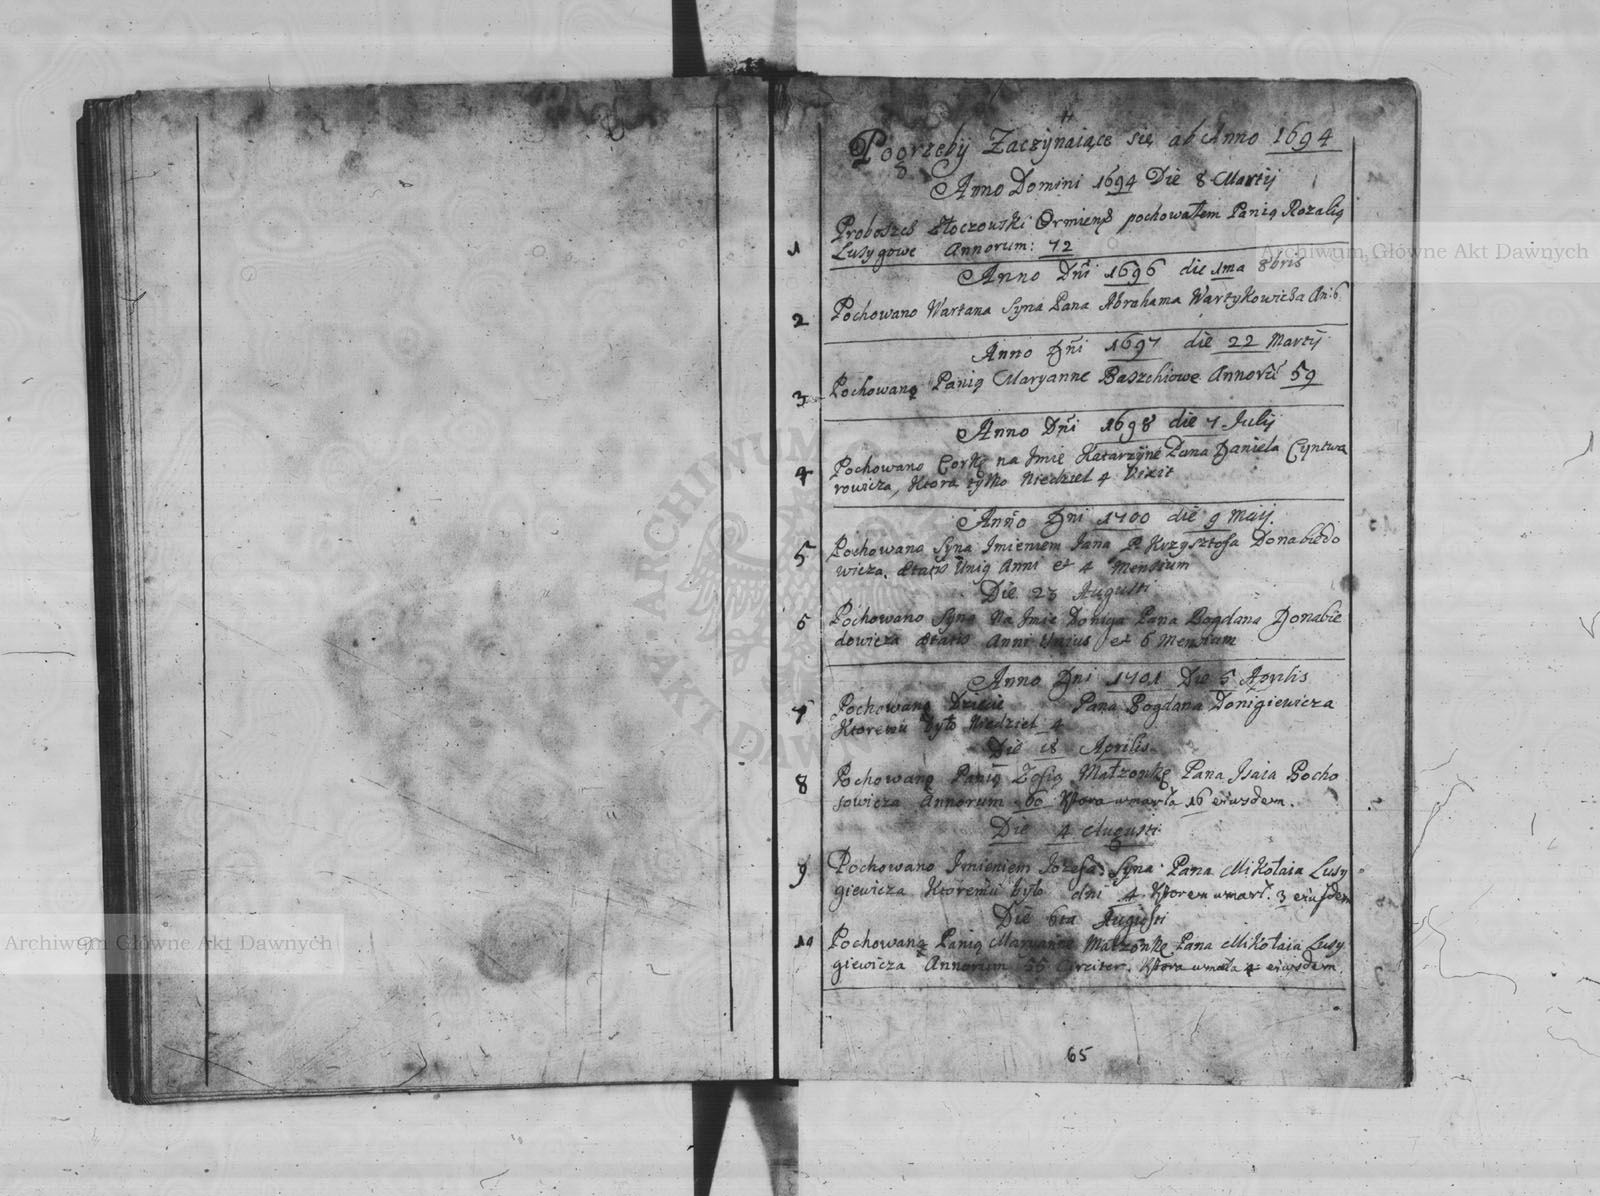 Pogrzeby Zaczynaiące się ab Anno 1694
Anno Domini 1694 Die 8 Martij
Proboszcz Złoczowski Ormienś pochowałem Panią Rozalią
1 Lusygowe Annorum: 72
Anno Dñi 1696 die 1ma 8bris
2 Pochowano Wartana Syna Pana Abrahama Wartykowicza An: 6
Anno Dñi 1697 die 22 Martij
3 Pochowaną Panią Maryanne Baszchiowe Annorũ 59
Anno Dñi 1698 die 7 Julij
4 Pochowano Corkę na Imie Katarzyne Pana Daniela Cyntwa
rowicza, Ktora tylko Niedziel 4 Vixit
Anno Dni 1700 die 9 Maij.
5 Pochowano Syna Imieniem Iana P. Krzysztofa Donabiedo
wicza. Ætatis Unig Anni et 4 Mensium
Die 23 Augusti
6 Pochowano Syna Na Imie Doniga Pana Bogdana Donabie
dowicza Ætatis Anni Unius et 6 Mensium
Anno Dni 1701 Die 5 Aprilis
7 Pochowano Dziecie Pana Bogdana Donigiewicza
Ktoremu było Niedziel 4
Die 18 Aprilis
8 Pochowaną Panią Zofią Małzonkę Pana Isaia Bocho
sowicza Annorum 60 Ktora umarła 16 eiusdem.
Die 4 Augusti
9 Pochowano Imieniem Iozefa Syna Pana Mikołaia Lusy
giewicza Ktoremu było dni 4 Ktoren umarł. 3 eiusdem
Die 6ta Augusti
10 Pochowaną Panią Maryanne Małzonkę Pana Mikołaia Lusy
giewicza Annorum 55 Circiter. Ktora umarła 4 eiusdem.
65
Archiwum Główne Akt Dawnych
Archiwum Główne Akt Dawnych
ARCHIWUM
AKT DAWN